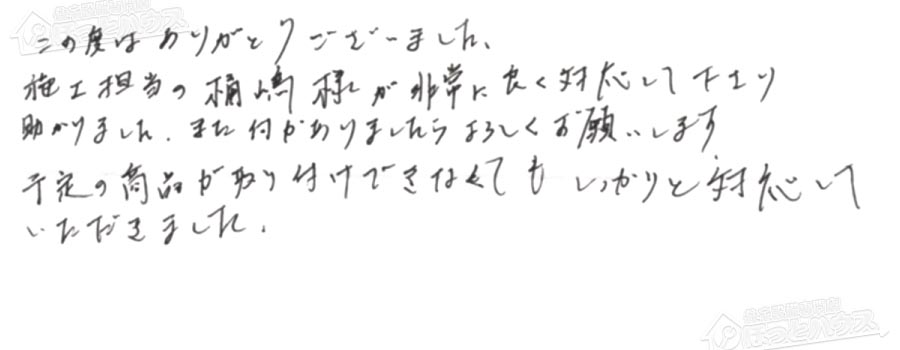 この度はありがとうございました、
施工担当の桶嶋様が非常に良く対応して下さり
助かりました. また何かありましたらよろしくお願いします
予定の商品が取り付けできなくても しっかりと対応して
いただきました.
ほっとハウス
ほっとハウス